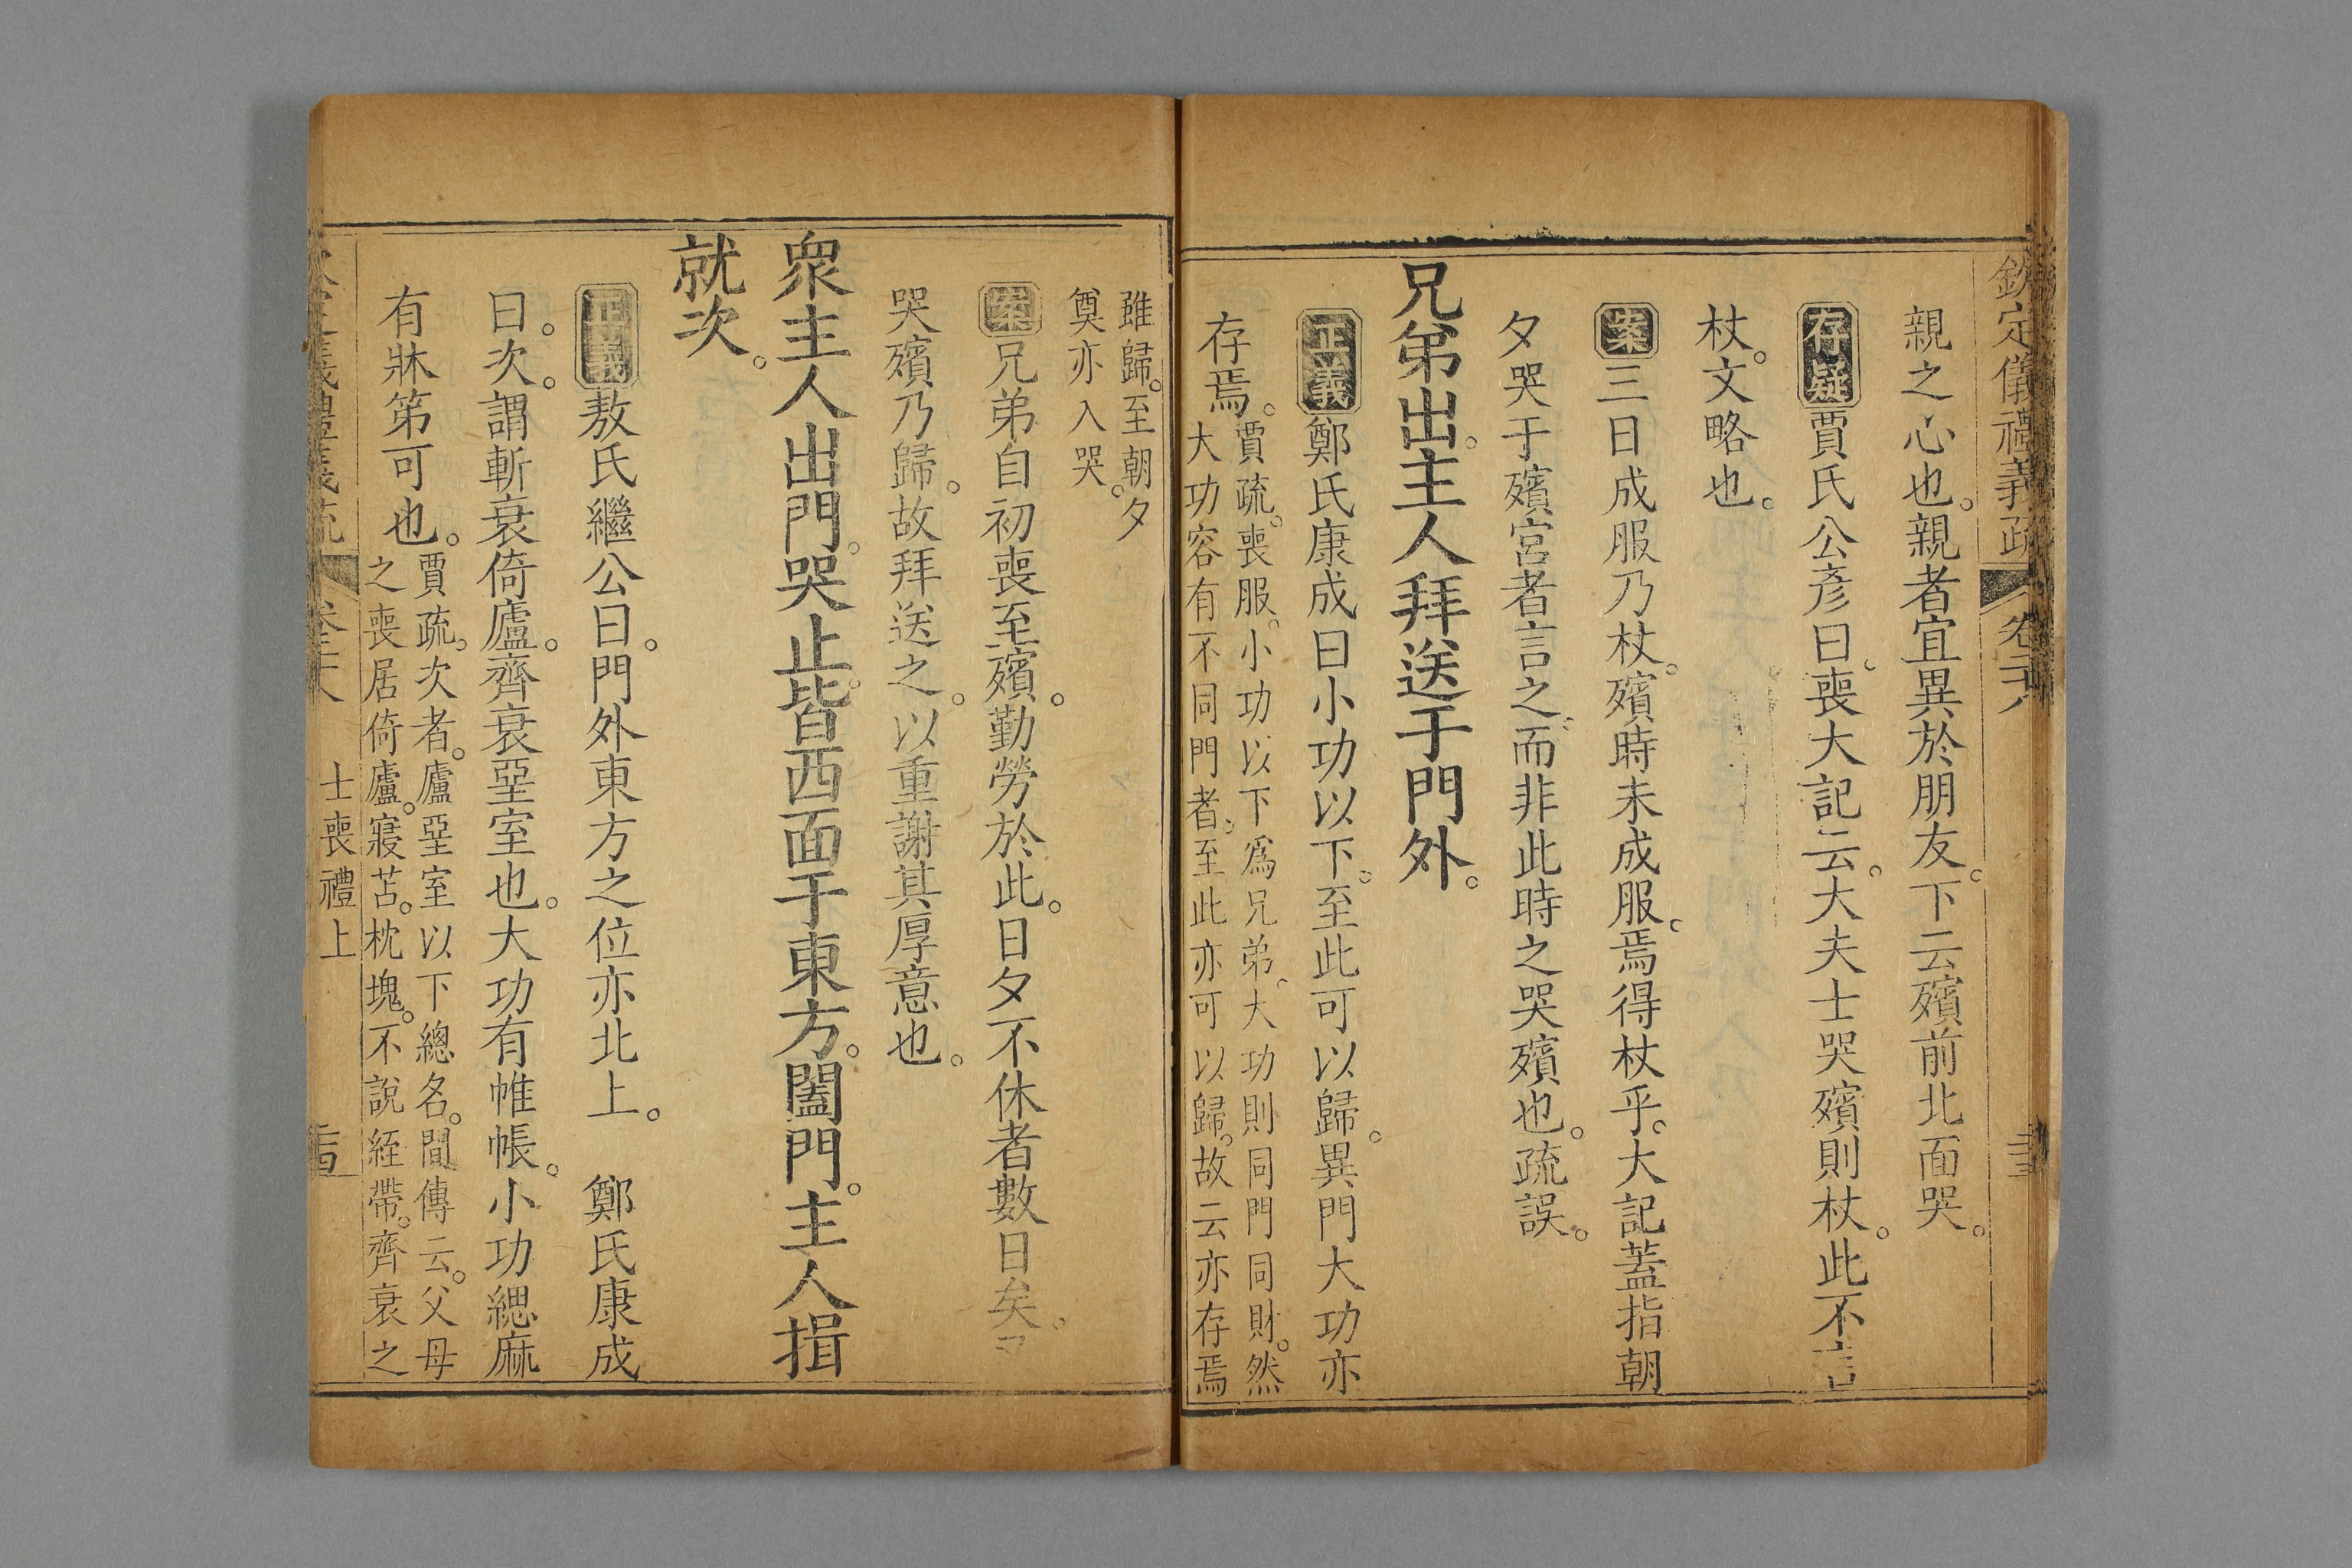 欽定儀禮義疏 卷二十八
親之心也。親者宜異於朋友。下云殯前北面哭。
存疑 賈氏公彥曰。喪大記云。大夫士哭殯則杖。此不言
杖。文略也。
案 三日成服乃杖。殯時未成服。焉得杖乎。大記蓋指朝
夕哭于殯宮者言之。而非此時之哭殯也。疏誤。
兄弟出。主人拜送于門外。
正義 鄭氏康成曰小功以下。至此可以歸。異門大功亦
存焉。
賈疏。喪服。小功以下為兄弟。大功則同門同財。然
大功容有不同門者。至此亦可以歸。故云亦存焉
雖歸。至朝夕
奠亦入哭。
案 兄弟自初喪至殯。勤勞於此。日夕不休者數日矣。
哭殯乃歸。故拜送之。以重謝其厚意也。
眾主人出門。哭止。皆西面于東方。闔門。主人揖
就次。
正義 敖氏繼公曰。門外東方之位亦北上。 鄭氏康成
曰。次。謂斬衰倚廬。齊衰堊室也。大功有帷帳。小功緦麻
有牀第可也。
賈疏。次者。廬堊室以下總名。間傳云。父母
之喪居倚廬。寢苫。枕塊。不說絰帶。齊衰之
士喪禮上